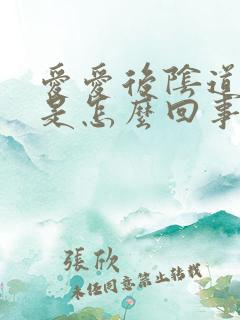 愛愛後陰道
是怎麼回事
張欣
未經同意禁止轉載